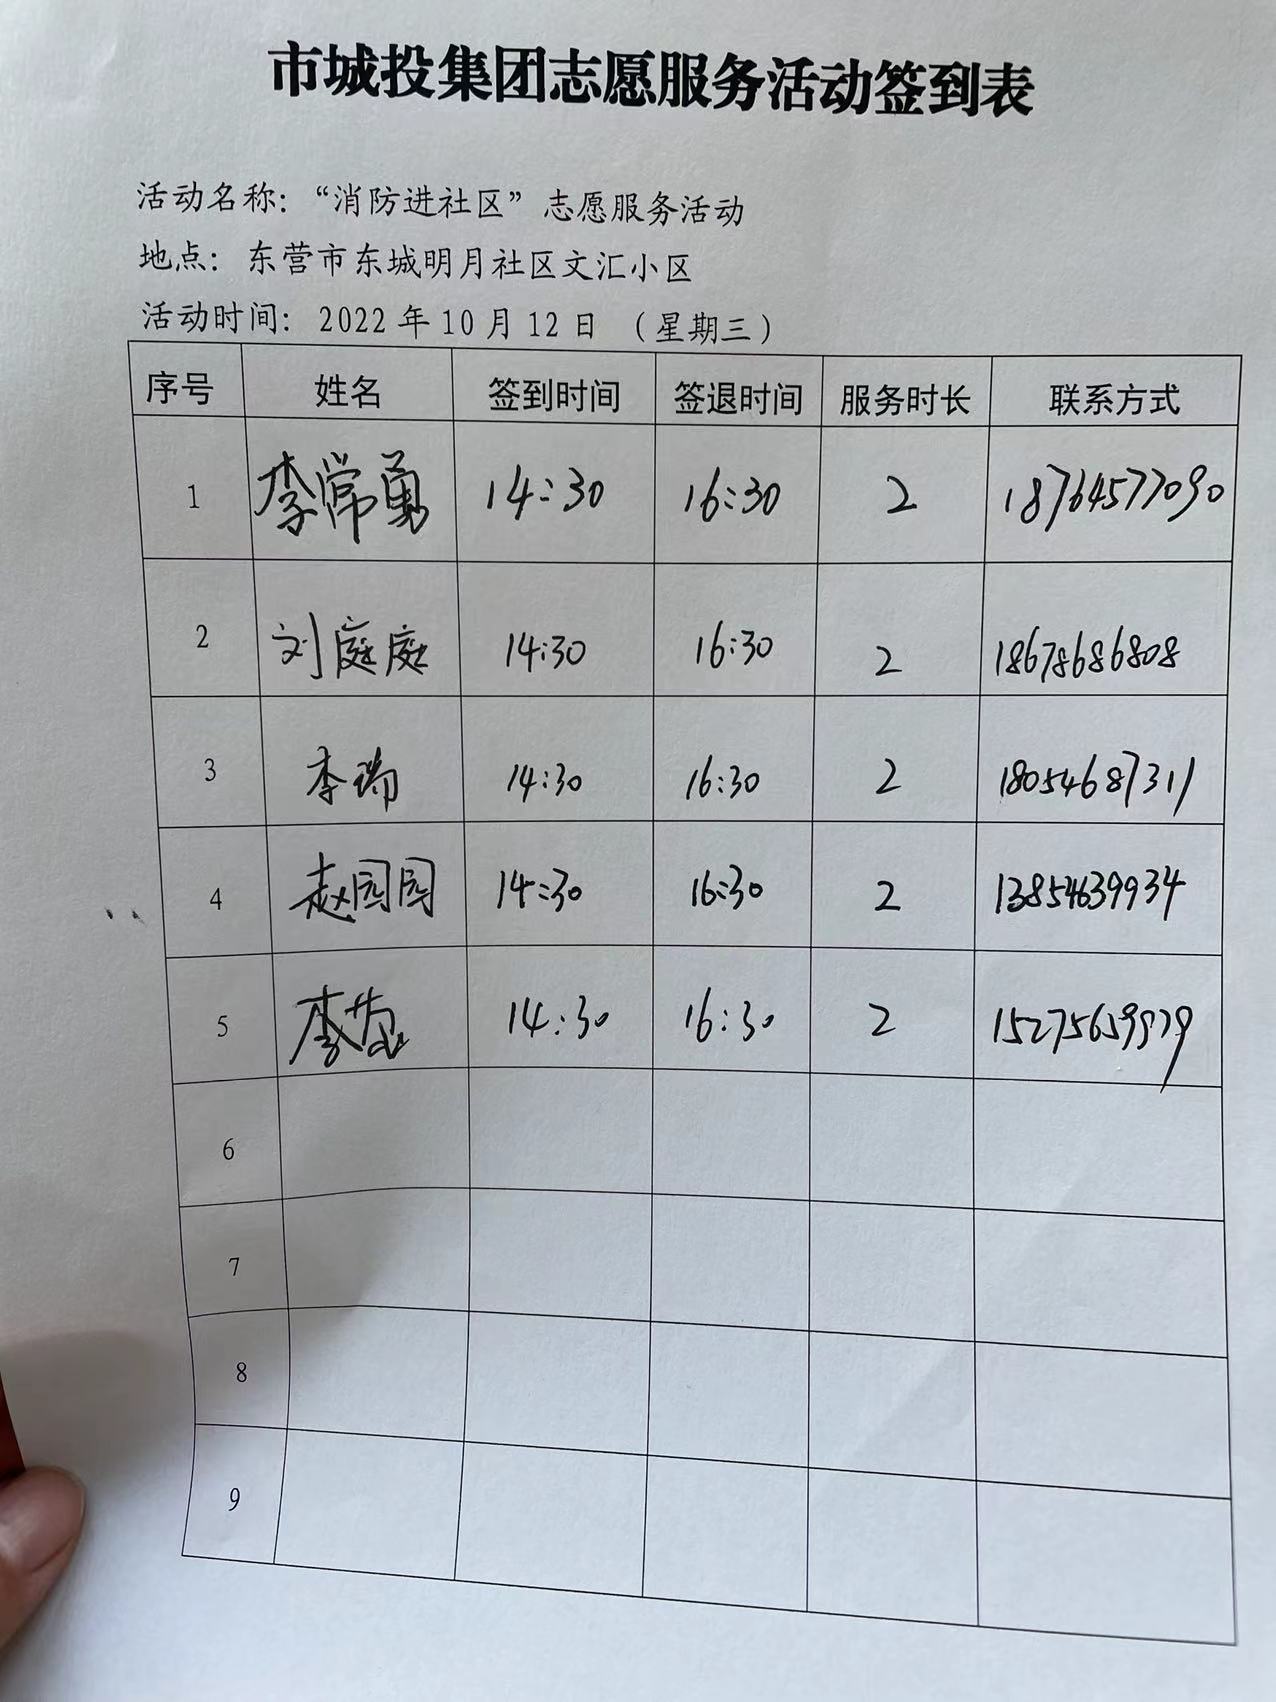 市城投集团志愿服务活动签到表
活动名称：“消防进社区”志愿服务活动
地点：东营市东城明月社区文汇小区
活动时间：2022年10月12日（星期三）
序号 姓名 签到时间 签退时间 服务时长 联系方式
1 李常勇 14:30 16:30 2 18764577090
2 刘庭庭 14:30 16:30 2 18678686808
3 李瑞 14:30 16:30 2 18054687311
4 赵园园 14:30 16:30 2 13854639934
5 14:30 16:30 2
6
7
8
9